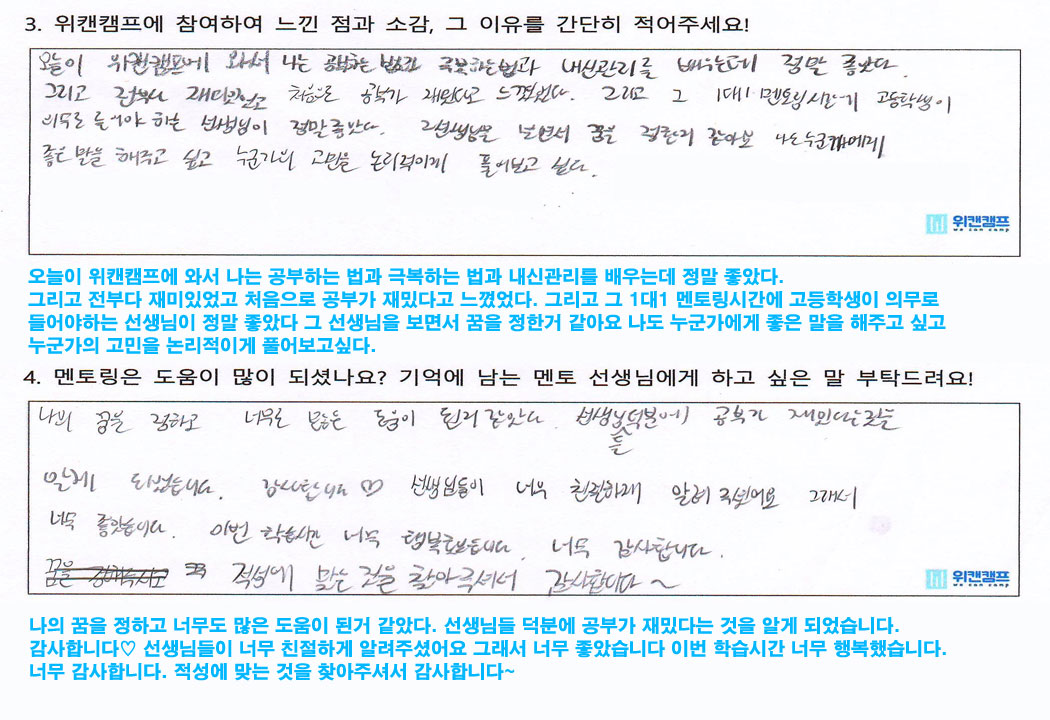 3. 위캔캠프에 참여하여 느낀 점과 소감, 그 이유를 간단히 적어주세요!
오늘이 위캔캠프에 와서 나는 공부하는 법과 극복하는법과 내신관리를 배우는데 정말 좋았다.
그리고 전부다 재미있었고 처음으로 공부가 재밌다고 느꼈었다. 그리고 그 1대1 멘토링시간에 고등학생이
의무로 들어야 하는 선생님이 정말좋았다. 그선생님을 보면서 꿈을 정한거 같아요 나도누군가에게
좋은 말을 해주고 싶고 누군가의 고민을 논리적이게 풀어보고 싶다.
위캔캠프
we can camp
오늘이 위캔캠프에 와서 나는 공부하는 법과 극복하는 법과 내신관리를 배우는데 정말 좋았다.
그리고 전부다 재미있었고 처음으로 공부가 재밌다고 느꼈었다. 그리고 그 1대1 멘토링시간에 고등학생이 의무로
들어야하는 선생님이 정말 좋았다 그 선생님을 보면서 꿈을 정한거 같아요 나도 누군가에게 좋은 말을 해주고 싶고
누군가의 고민을 논리적이게 풀어보고싶다.
4. 멘토링은 도움이 많이 되셨나요? 기억에 남는 멘토 선생님에게 하고 싶은 말 부탁드려요!
나의 꿈을 정하고 너무도 많은 도움이 된거 같았다. 선생님들 덕분에 공부가 재밌다는 것을
알게 되었습니다. 감사합니다♡ 선생님들이 너무 친절하게 알려주셨어요 그래서
너무 좋았습니다. 이번 학습시간 너무 행복했습니다. 너무 감사합니다.
적성에 맞는 것을 찾아주셔서 감사합니다~
위캔캠프
we can camp
나의 꿈을 정하고 너무도 많은 도움이 된거 같았다. 선생님들 덕분에 공부가 재밌다는 것을 알게 되었습니다.
감사합니다♡ 선생님들이 너무 친절하게 알려주셨어요 그래서 너무 좋았습니다 이번 학습시간 너무 행복했습니다.
너무 감사합니다. 적성에 맞는 것을 찾아주셔서 감사합니다~